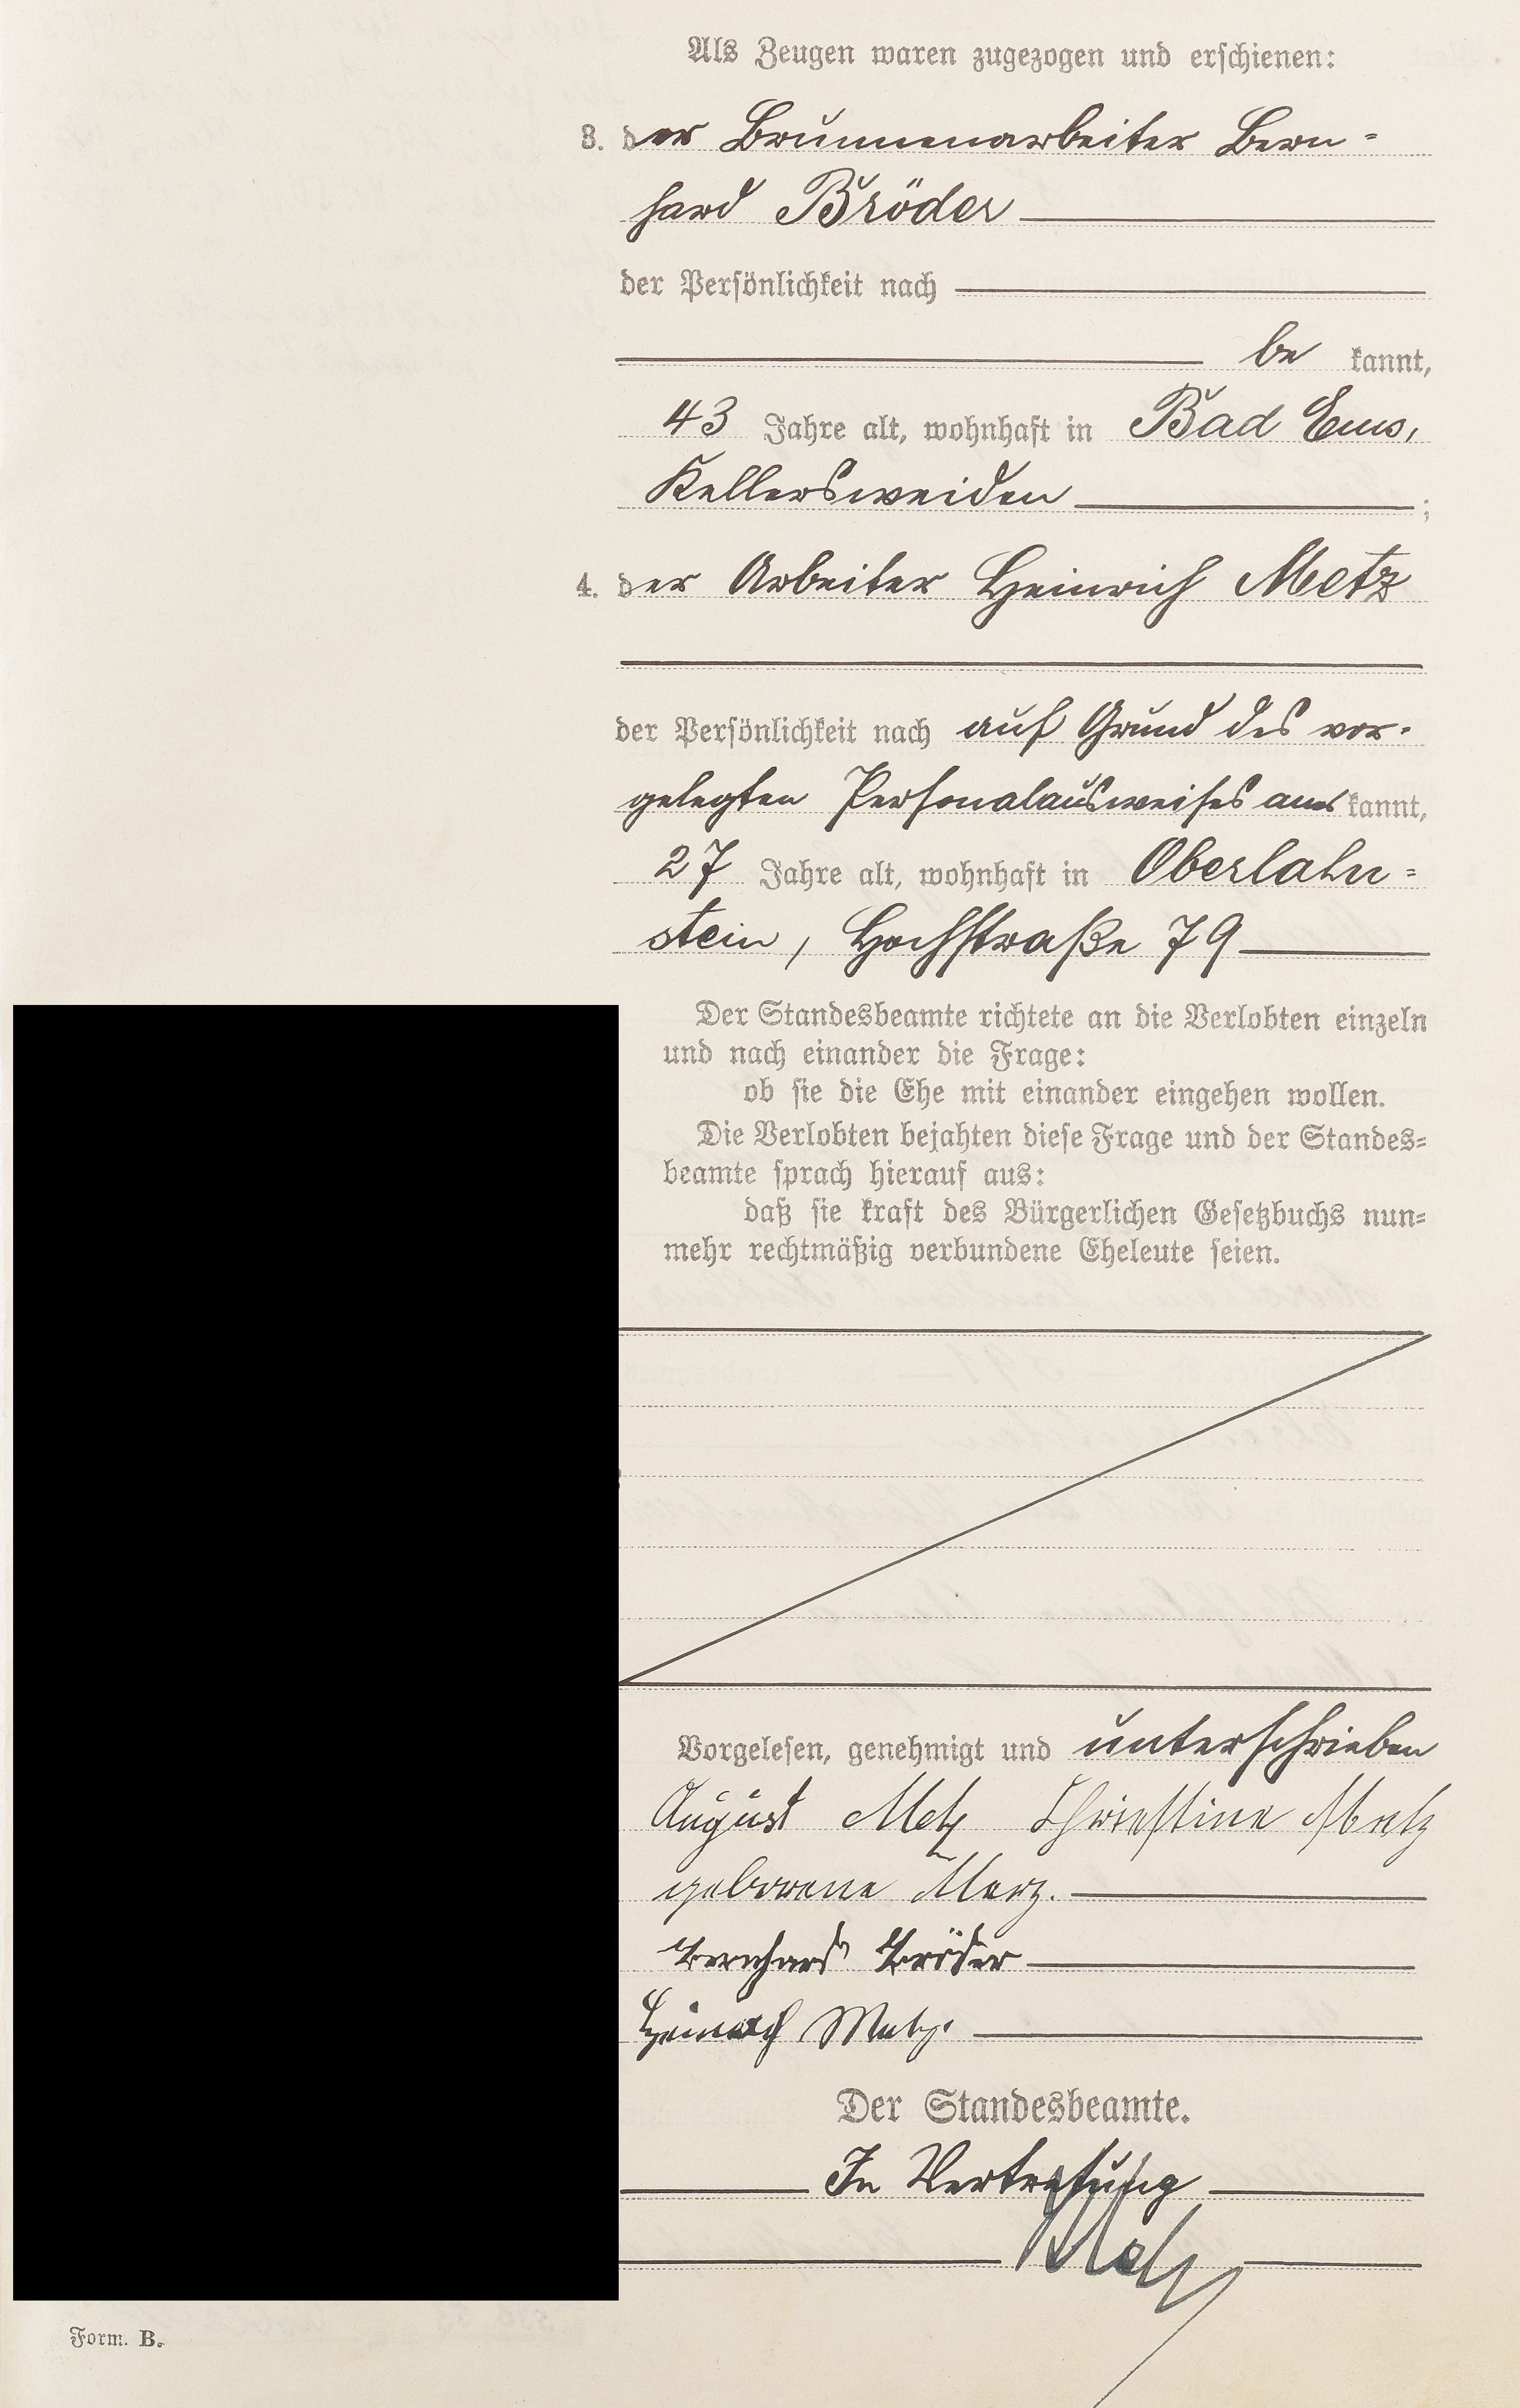 Als Zeugen waren zugezogen und erschienen:
3. der Brunnenarbeiter Bern-
hard Bröder
der Persönlichkeit nach
be kannt,
43 Jahre alt, wohnhaft in Bad Ems,
Kellersweiden ;
4. der Arbeiter Heinrich Metz
der Persönlichkeit nach auf Grund des vor-
gelegten Personalausweises aner kannt,
27 Jahre alt, wohnhaft in Oberlahn-
stein, Hochstraße 79
Der Standesbeamte richtete an die Verlobten einzeln
und nach einander die Frage:
ob sie die Ehe mit einander eingehen wollen.
Die Verlobten bejahten diese Frage und der Standes-
beamte sprach hierauf aus:
daß sie kraft des Bürgerlichen Gesetzbuchs nun-
mehr rechtmäßig verbundene Eheleute seien.
Vorgelesen, genehmigt und unterschrieben
August Metz Christine Metz
geborene Merz.
Bernhard Bröder
Heinrich Metz.
Der Standesbeamte.
In Vertretung
Form. B.